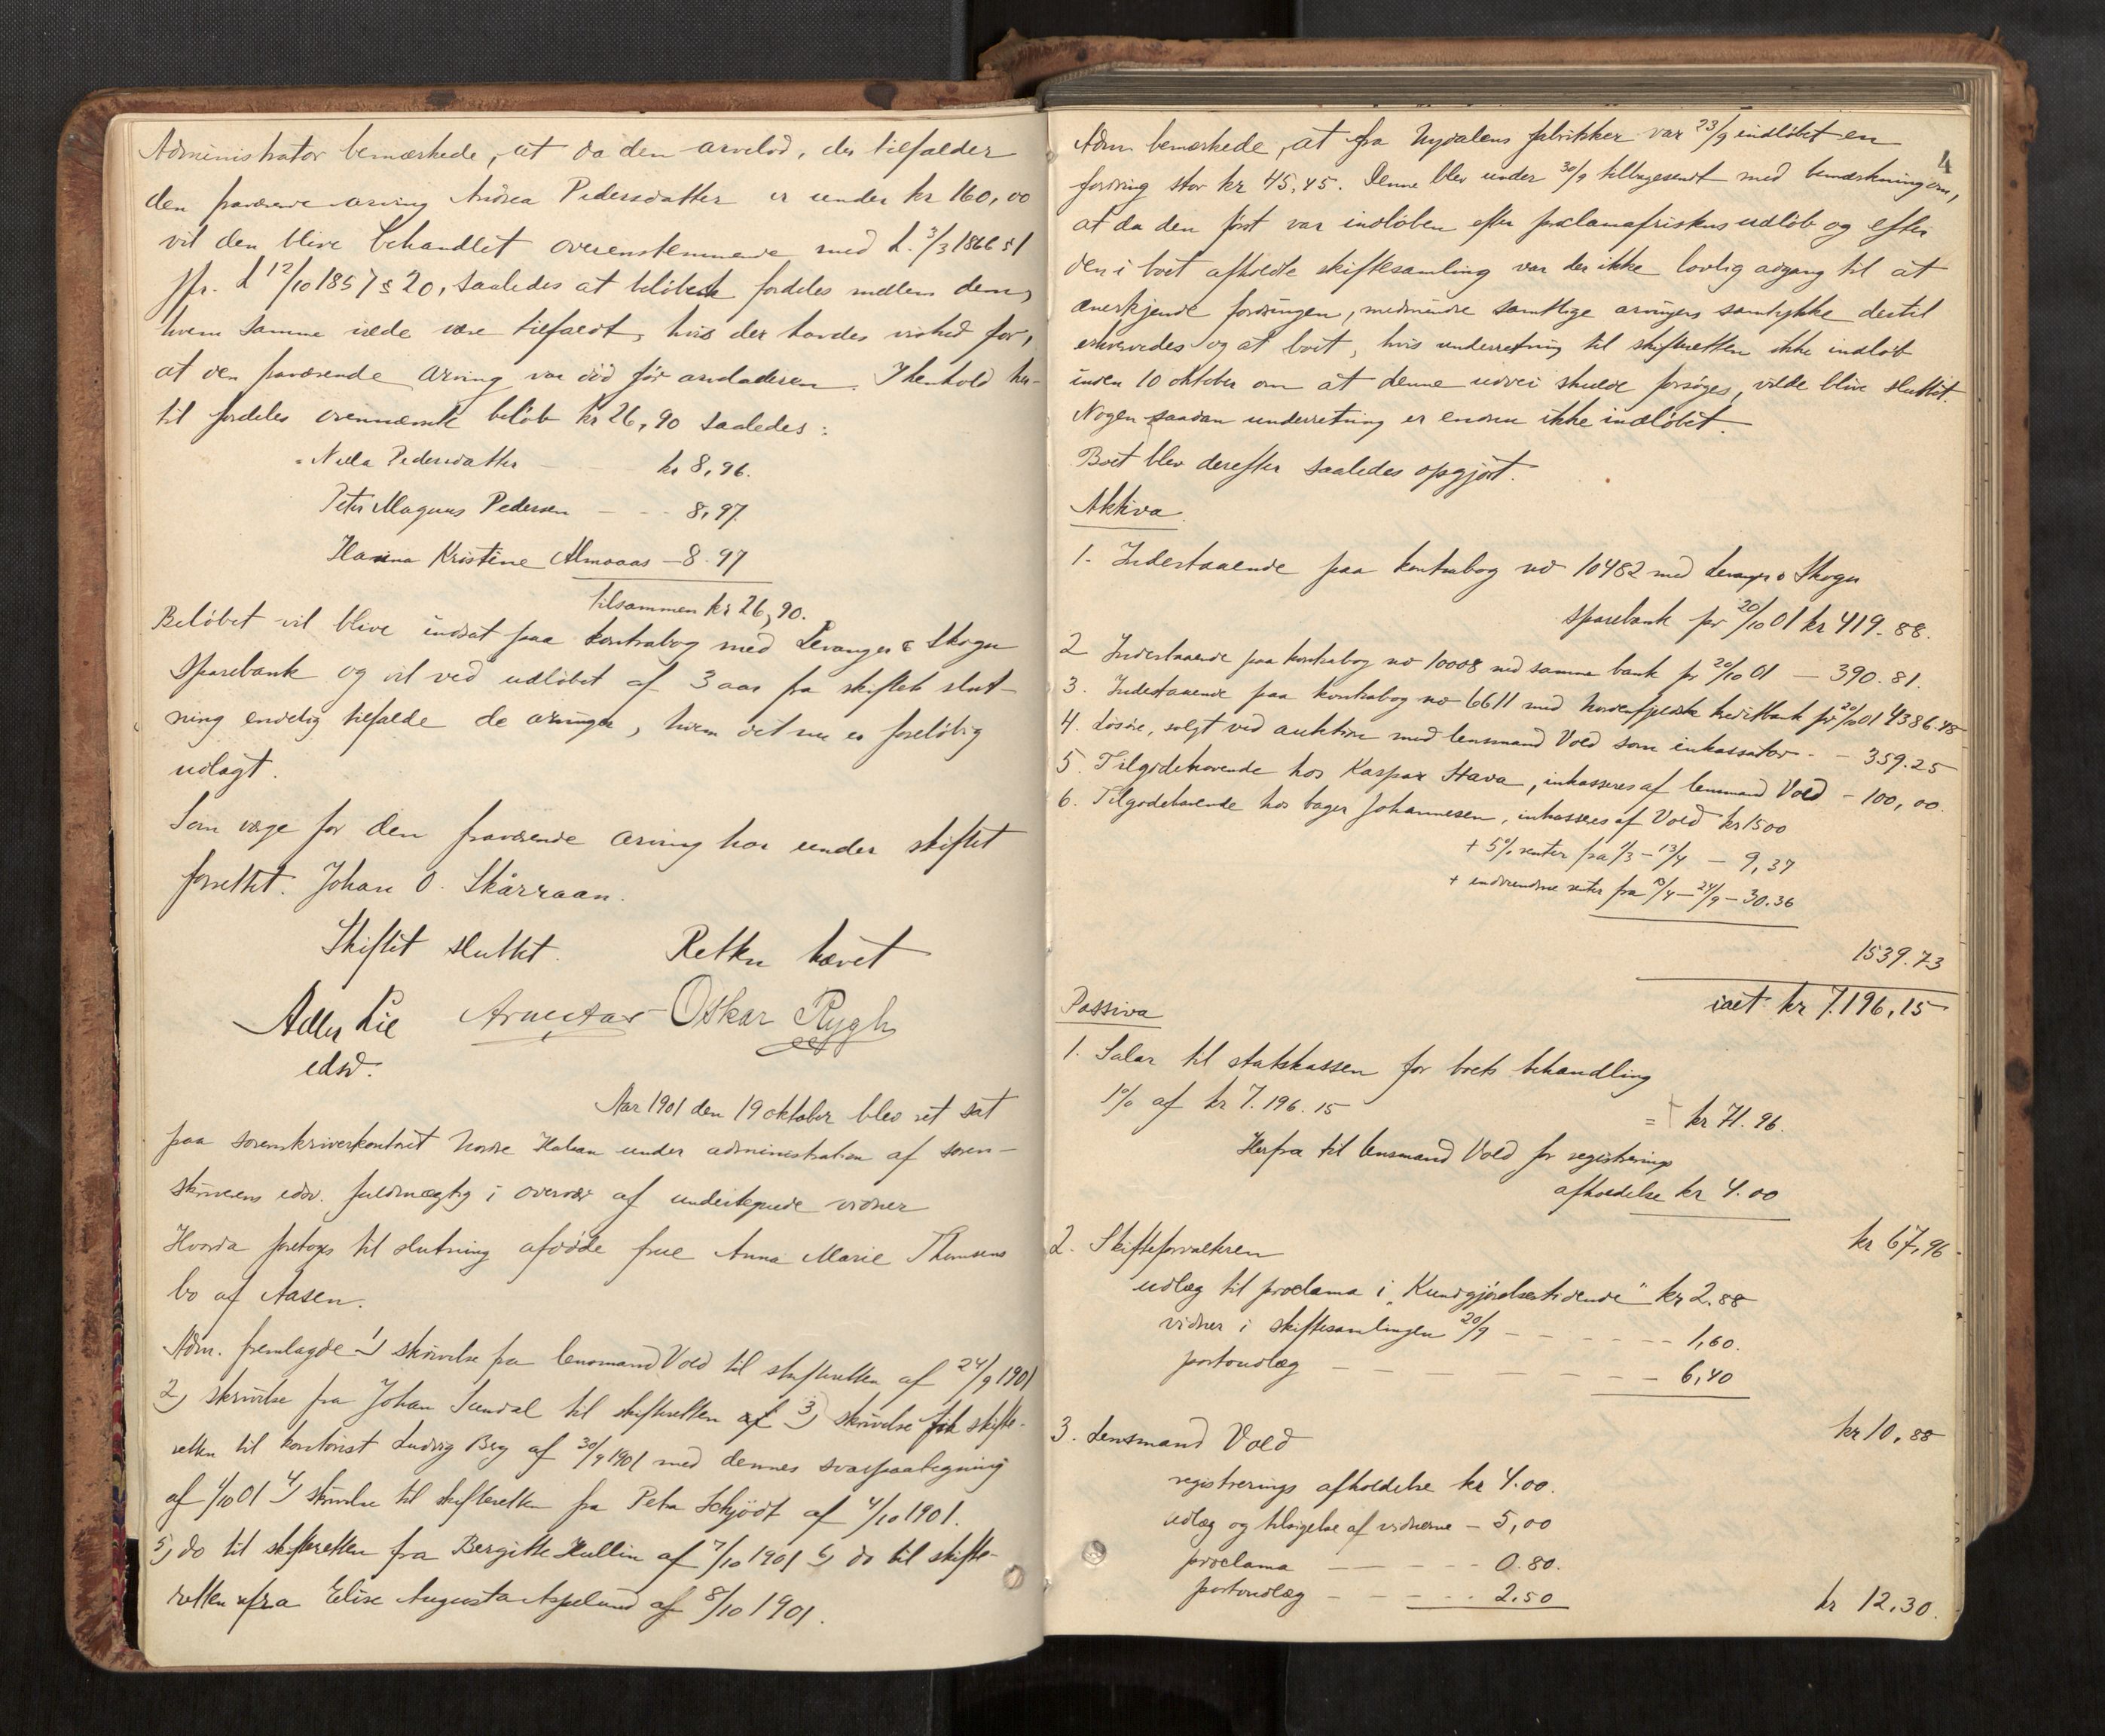 Administrator bemærkede, at da den arvelod, der tilfalder
den fraværende arving Andrea Pedersdatter er under kr 160,00
vil den blive behandlet overensstemmende med L. 3/3 1866 § 1
jfr. L 12/10 1857 § 20, saaledes at beløbet fordeles mellem dem,
hvem samme vilde være tilfaldt, hvis der havdes vished for,
at den fraværende arving var død før arvladeren. I henhold her-
til fordeles ovennævnte beløb kr 26,90 saaledes:
Pedersdatter – kr 8,96.
Peter Magnus Pedersen – – 8,97.
Hanna Kristine Almoaas – 8.97
Tilsammen kr 26,90.
Beløbet vil blive indsat paa kontrabog med Levanger & Skogn
Sparebank og vil ved udløbet af 3 aar fra skiftets slut-
ning endelig tilfalde de arvinger, hvem det nu er foreløbig
udlagt.
Som værge for den fraværende arving har under skiftet
forrettet. Johan O. Skårraan.
Skiftet sluttet. Retten hævet
Adler Lie Oskar Rygh
edsv.
Aar 1901 den 19 oktober blev ret sat
paa sorenskriverkontoret under administration af soren-
skriverens edsv. fuldmægtig i overvær af undertegnede vidner
Hvorda foretoges til slutning afdøde frue Anna Marie Thomsens
bo af Aasen.
Adm. fremlagde 1) skrivelse fra lensmand Vold til skifteretten af 24/9 1901
2) skrivelse fra Johan Sundal til skifteretten af 3) skrivelse fra skifte-
retten til kontorist Ludvig Berg af 30/9 1901 med dennes svarpaategning
af 1/10 01 4) skrivelse til skifteretten fra Petra Schjødt af 4/10 1901.
5) do til skifteretten fra Bergitte Hullin af 7/10 1901 6) do til skifte-
retten fra Elise Augusta Aspelund af 8/10 1901.
4
Adm bemærkede, at fra Nydalens fabrikker var 23/9 indløbet en
fordring stor kr 45,45. Denne blev under 30/9 tilbagesendt med bemærkning om,
at da den først var indløben efter proklamafristens udløb og efter
den i boet afholdte skiftesamling var der ikke lovlig adgang til at
anerkjende fordringen, medmindre samtlige arvingers samtykke dertil
erhvervedes og at boet, hvis underretning til skifteretten ikke indløb
inden 10 oktober om at denne udvei skulde forsøges, vilde blive sluttet.
Nogen saadan underretning er endnu ikke indløbet.
Boet blev derefter saaledes opgjort.
Aktiva
1. Indestaaende paa kontrabog no 10482 med Levanger & Skogn
sparebank pr 20/10 01 kr 419.88.
2 Indestaaende paa kontrabog no 10008 med samme bank pr 20/10 01 – 390.81.
3. Indestaaende paa kontrabog no 6611 med Nordenfjeldske kreditbank pr 20/10 01 4386.48
4. Løsøre, solgt ved auktion med lensmand Vold som inkassator – – 359.25
5. Tilgodehavende hos Kaspar Hava, inkasseres af lensmand Vold – 100,00.
6. Tilgodehavende hos bager Johannesen, inkasseres af Vold kr 1500
+ 5% renter fra 1/3 – 13/4 – 9,37
+ renter fra 13/4 – 24/9 – 30.36
1539.73
ialt kr 7.196,15
Passiva
1. Salær til statskassen for boets behandling
1% af kr 7.196.15 = kr 71.96.
Herfra til lensmand Vold for registrerings
afholdelse kr 4.00
kr 67,96
2. Skifteforvalteren
udlæg til proclama i "Kundgjørelsestidende" kr 2.88
vidner i skiftesamlingen 20/9 – – – – – 1,60.
portoudlæg – – – – – – – 6,40
kr 10,88
3. Lensmand Vold
registrerings afholdelse kr 4.00.
udlæg og tilsigelse af vidnerne – 5,00
proclama – – – – 0.80.
portoudlæg – – – – – 2.50
kr 12.30.